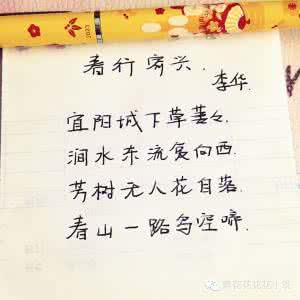 春行寄兴.
李华.
宜阳城下草萋々.
涧水东流复向西.
芳树无人花自落.
春山一路鸟空啼.